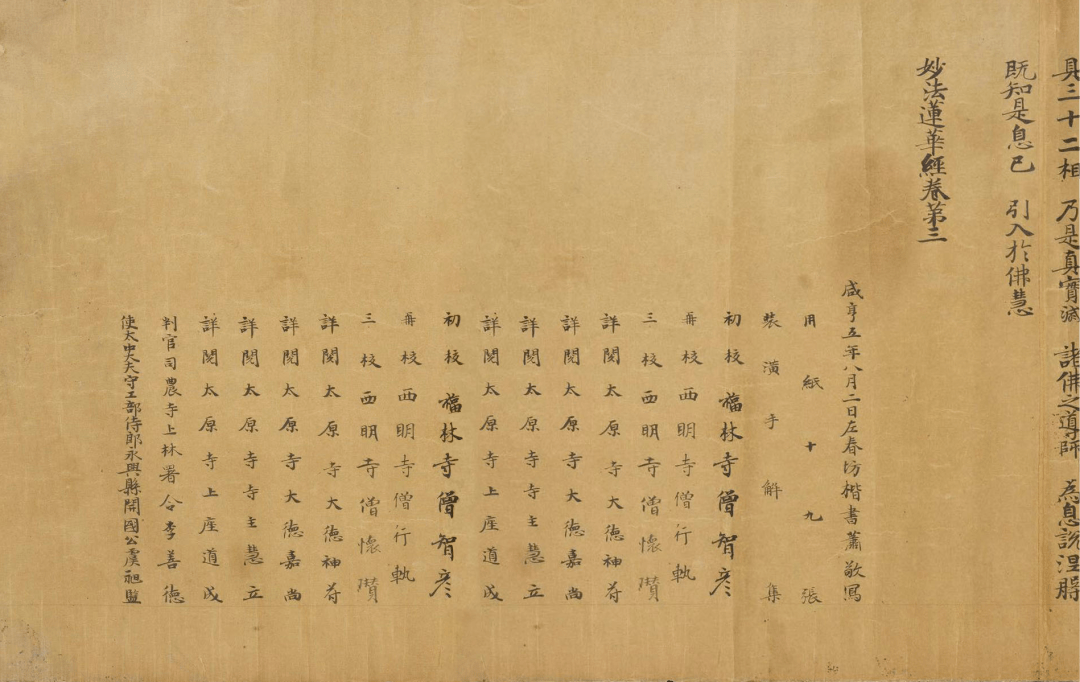 具三十二相　乃是真實滅　諸佛之導師　為息說涅槃
既知是息已　引入於佛慧
妙法蓮華經卷第三
咸亨五年八月二日左春坊楷書蕭敬寫
用紙十九張
裝潢手解集
初校福林寺僧智彥
再校西明寺僧行軌
三校西明寺僧懷瓚
詳閱太原寺大德神符
詳閱太原寺大德嘉尚
詳閱太原寺寺主慧立
詳閱太原寺上座道成
初校福林寺僧智彥
再校西明寺僧行軌
三校西明寺僧懷瓚
詳閱太原寺大德神符
詳閱太原寺大德嘉尚
詳閱太原寺寺主慧立
詳閱太原寺上座道成
判官司農寺上林署令李善德
使太中大夫守工部侍郎永興縣開國公虞昶監